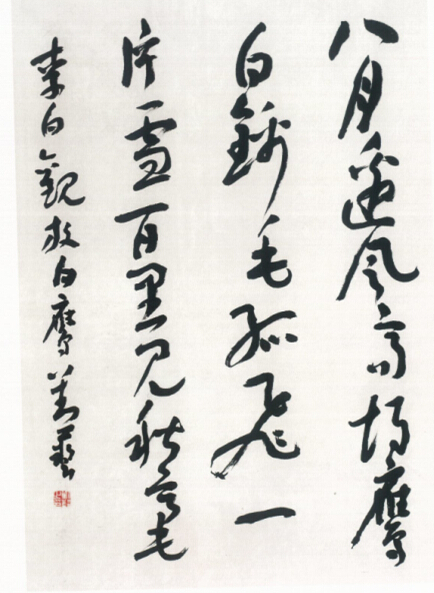 八月邊風高胡鷹
白錦毛孤飛一
片雪百里見秋毫
李白觀放白鷹